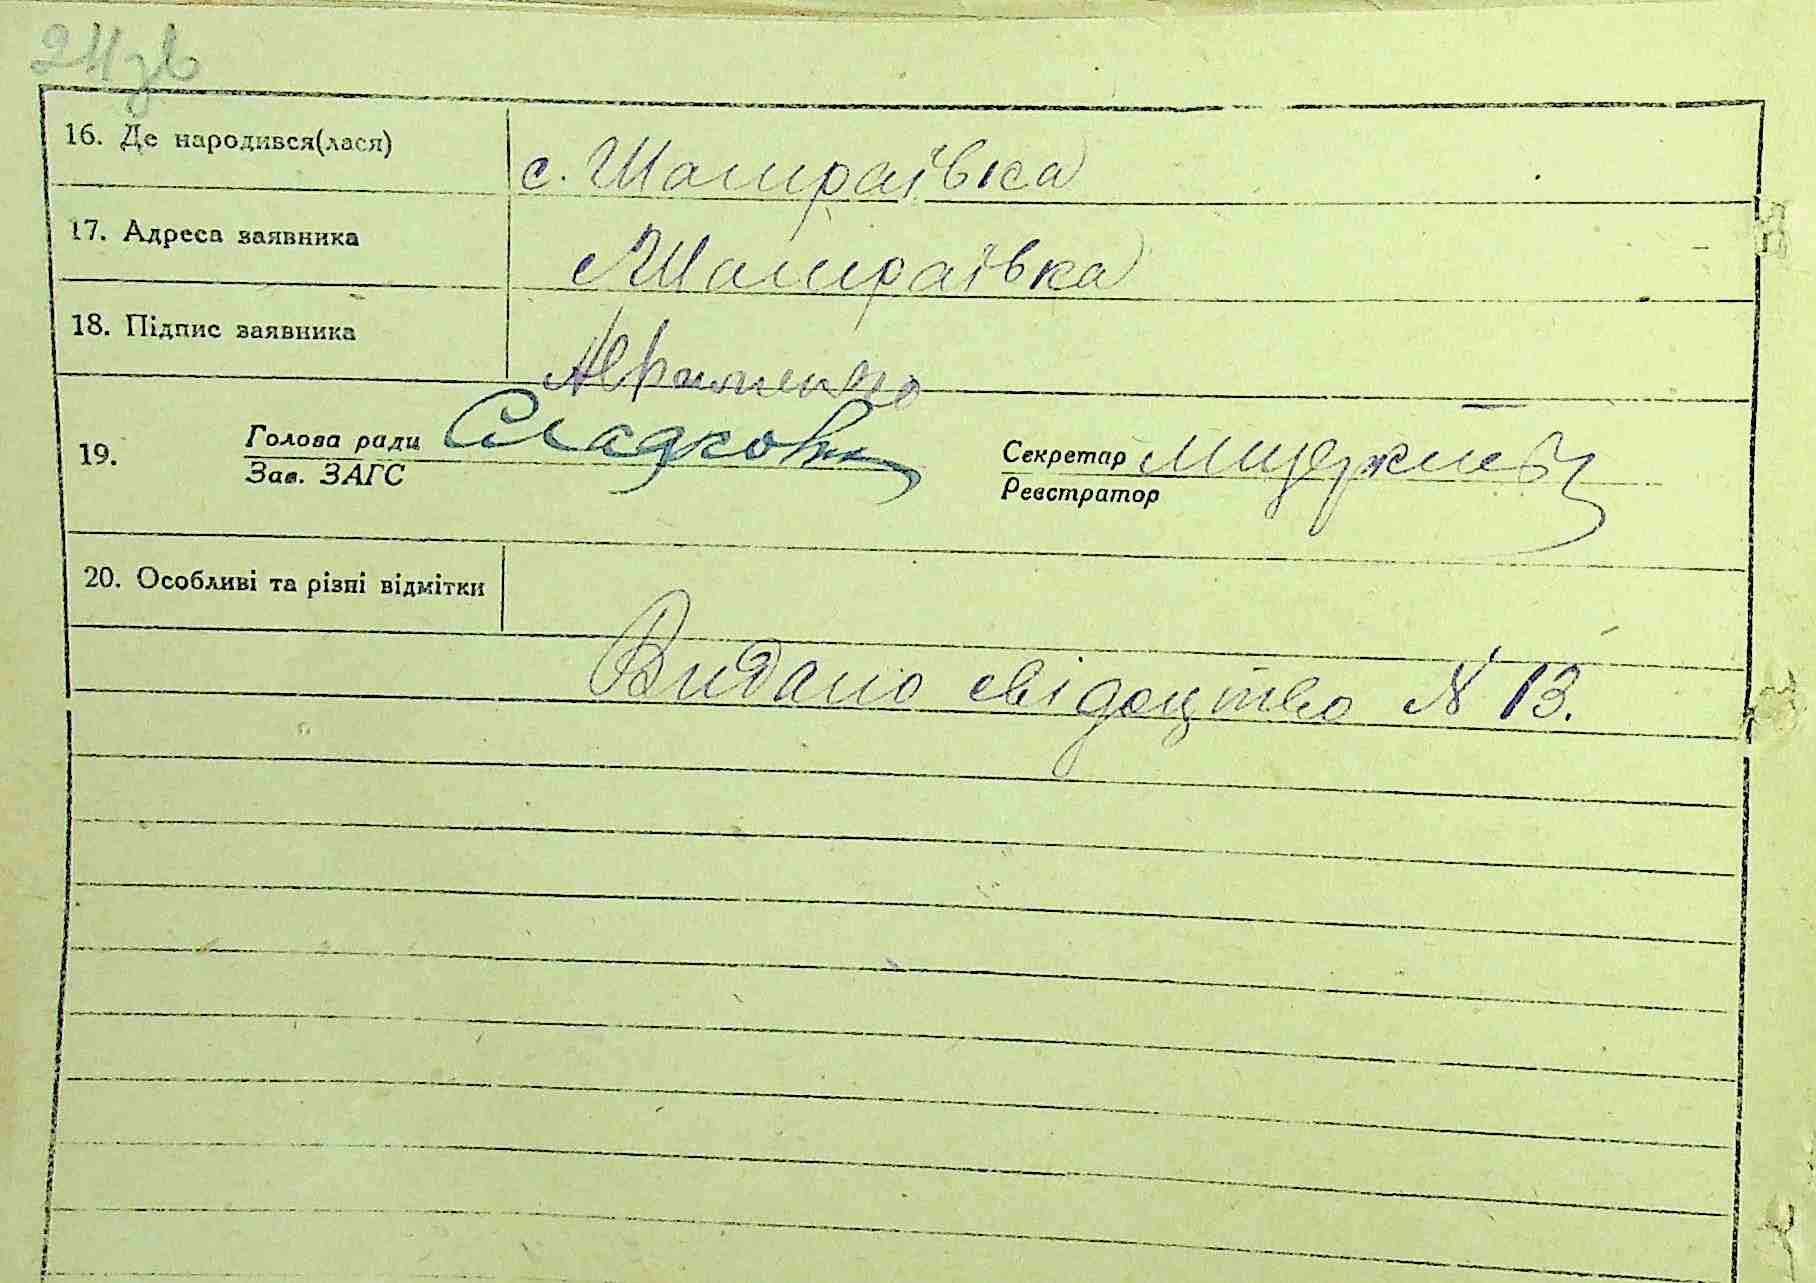 24зв
16. Де народився(лася) с. Шамраївка
17. Адреса заявника с Шамраївка
18. Підпис заявника
19. Голова ради Секретар
Зав. ЗАГС Реєстратор
20. Особливі та різні відмітки
Видано свідоцтво N 13.